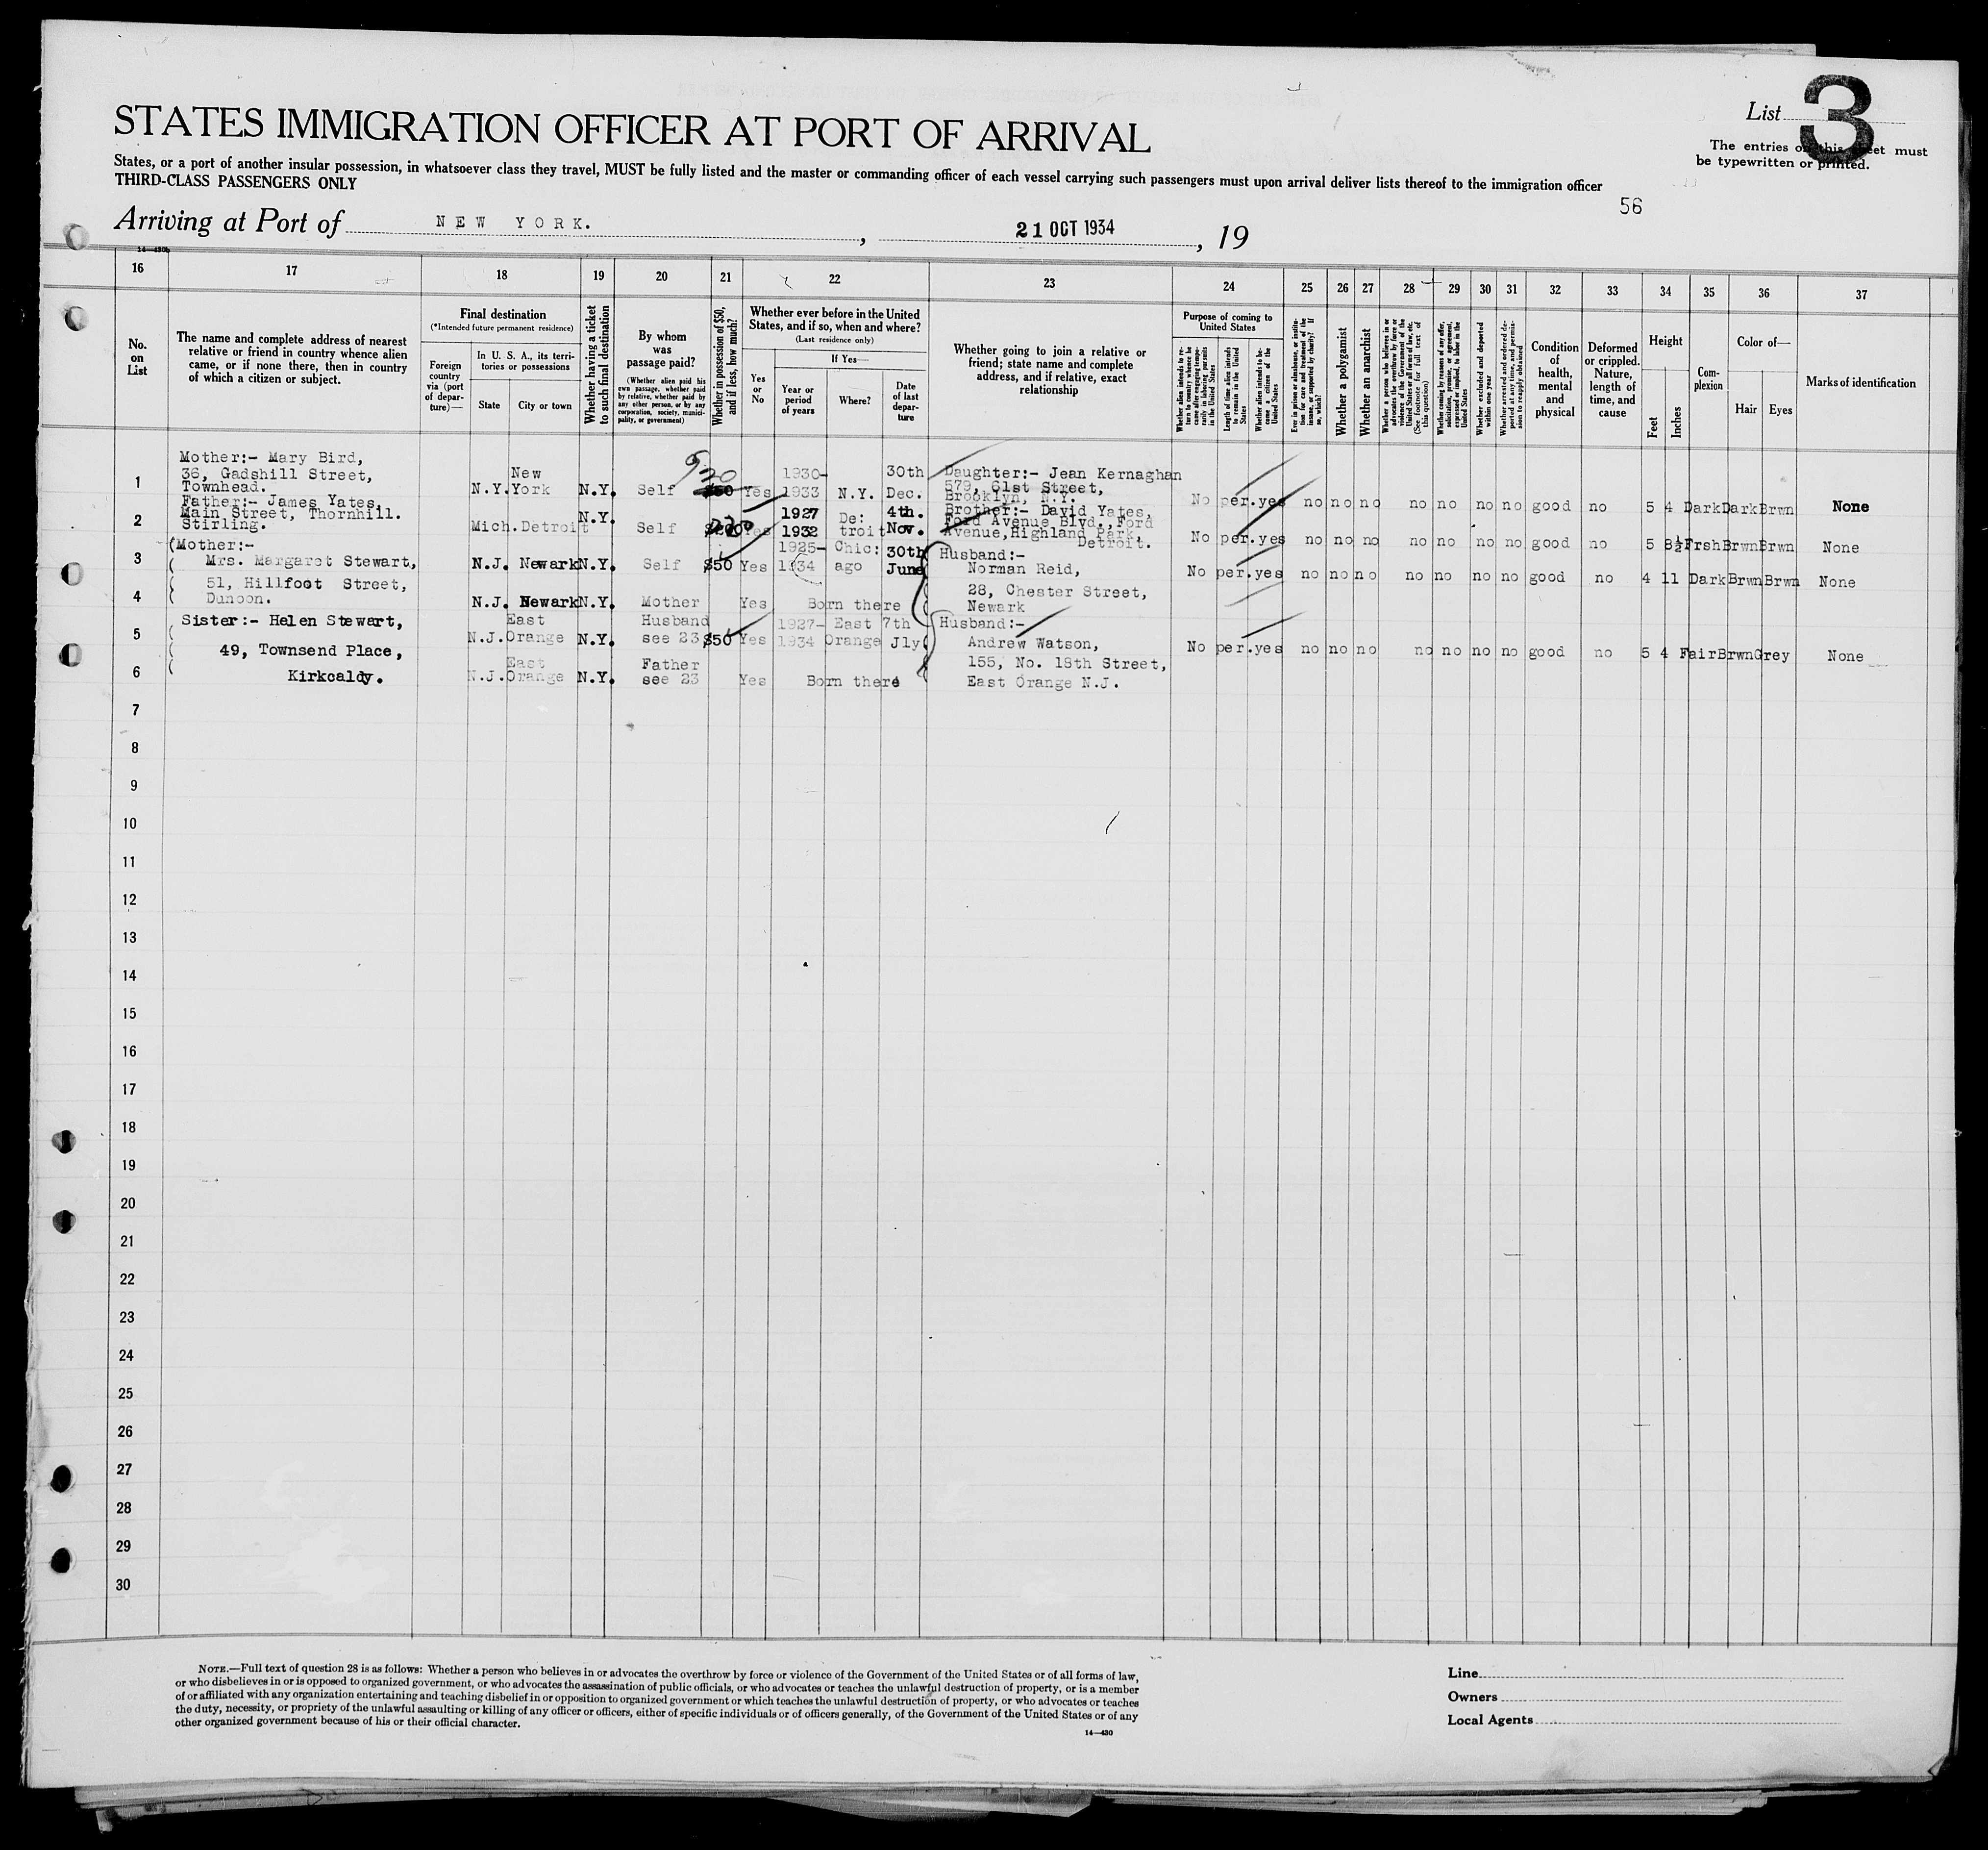 List 3
STATES IMMIGRATION OFFICER AT PORT OF ARRIVAL
The entries on this sheet must
be typewritten or printed.
States, or a port of another insular possession, in whatsoever class they travel, MUST be fully listed and the master or commanding officer of each vessel carrying such passengers must upon arrival deliver lists thereof to the immigration officer
THIRD-CLASS PASSENGERS ONLY
56
Arriving at Port of NEW YORK. , 21 OCT 1934 , 19
14—430b
16 17 18 19 20 21 22 23 24 25 26 27 28 29 30 31 32 33 34 35 36 37
No. on List
The name and complete address of nearest
relative or friend in country whence alien
came, or if none there, then in country
of which a citizen or subject.
Final destination
(*Intended future permanent residence)
Foreign country via (port of departure)—
In U. S. A., its territories or possessions
State
City or town
Whether having a ticket to such final destination
By whom was passage paid?
(Whether alien paid his own passage, whether paid by relative, whether paid by any other person, or by any corporation, society, municipality, or government)
Whether in possession of $50, and if less, how much?
Whether ever before in the United States, and if so, when and where?
(Last residence only)
Yes or No
If Yes—
Year or period of years
Where?
Date of last departure
Whether going to join a relative or
friend; state name and complete
address, and if relative, exact
relationship
Purpose of coming to United States
Whether alien intends to return to country whence he came after engaging temporarily in laboring pursuits in the United States
Length of time alien intends to remain in the United States
Whether alien intends to become a citizen of the United States
Ever in prison or almshouse, or institution for care and treatment of the insane, or supported by charity? If so, which?
Whether a polygamist
Whether an anarchist
Whether a person who believes in or advocates the overthrow by force or violence of the Government of the United States or all forms of law, etc. (See footnote for full text of this question)
Whether coming by reason of any offer, solicitation, promise, or agreement, expressed or implied, to labor in the United States
Whether excluded and deported within one year
Whether arrested and ordered deported at any time, and permission to reapply obtained
Condition of health, mental and physical
Deformed or crippled. Nature, length of time, and cause
Height
Feet
Inches
Complexion
Color of—
Hair
Eyes
Marks of identification
1 Mother:- Mary Bird, 36, Gadshill Street, Townhead. N.Y. New York N.Y. Self $50 Yes 1930-1933 N.Y. 30th Dec. Daughter:- Jean Kernaghan 579, 61st Street, Brooklyn, N.Y. No per. yes no no no no no no no good no 5 4 Dark Dark Brwn None
2 Father:- James Yates, Main Street, Thornhill. Stirling. Mich. Detroit N.Y. Self Yes 1927 1932 De:troit 4th. Nov. Brother:- David Yates, Ford Avenue Blvd., Ford Avenue, Highland Park, Detroit. No per. yes no no no no no no no good no 5 8½ Frsh Brwn Brwn None
3 (Mother:- Mrs. Margaret Stewart, N.J. Newark N.Y. Self $50 Yes 1925-1934 Chic:ago 30th June Husband:- Norman Reid, No per. yes no no no no no no no good no 4 11 Dark Brwn Brwn None
4 51, Hillfoot Street, Dunoon. N.J. Newark N.Y. Mother Yes Born there 28, Chester Street, Newark
5 Sister:- Helen Stewart, 49, Townsend Place, N.J. East Orange N.Y. Husband see 23 $50 Yes 1927-1934 East Orange 7th Jly Husband:- Andrew Watson, No per. yes no no no no no no no good no 5 4 Fair Brwn Grey None
6 Kirkcaldy. N.J. East Orange N.Y. Father see 23 Yes Born there 155, No. 18th Street, East Orange N.J.
7
8
9
10
11
12
13
14
15
16
17
18
19
20
21
22
23
24
25
26
27
28
29
30
NOTE.—Full text of question 28 is as follows: Whether a person who believes in or advocates the overthrow by force or violence of the Government of the United States or of all forms of law,
or who disbelieves in or is opposed to organized government, or who advocates the assassination of public officials, or who advocates or teaches the unlawful destruction of property, or is a member
of or affiliated with any organization entertaining and teaching disbelief in or opposition to organized government or which teaches the unlawful destruction of property, or who advocates or teaches
the duty, necessity, or propriety of the unlawful assaulting or killing of any officer or officers, either of specific individuals or of officers generally, of the Government of the United States or of any
other organized government because of his or their official character.
14—430
Line
Owners
Local Agents